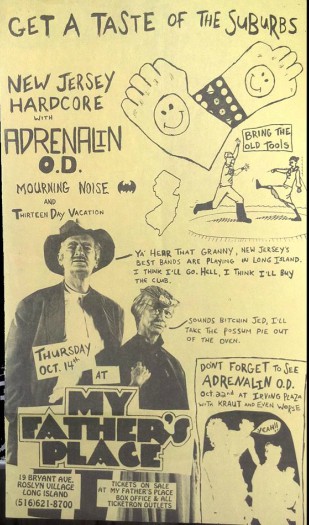 GET A TASTE OF THE SUBURBS
NEW JERSEY
HARDCORE
WITH
ADRENALIN
O.D.
MOURNING NOISE
AND
THIRTEEN DAY VACATION
BRING THE
OLD TOOLS
YA' HEAR THAT GRANNY, NEW JERSEY'S
BEST BANDS ARE PLAYING IN LONG ISLAND.
I THINK I'LL GO. HELL, I THINK I'LL BUY
THE CLUB.
SOUNDS BITCHIN JED, I'LL
TAKE THE POSSUM PIE OUT
OF THE OVEN.
THURSDAY
OCT. 14th
AT
MY
FATHER'S
PLACE
19 BRYANT AVE.
ROSLYN VILLAGE
LONG ISLAND
(516)621-8700
TICKETS ON SALE
AT MY FATHER'S PLACE
BOX OFFICE & ALL
TICKETRON OUTLETS
DON'T FORGET TO SEE
ADRENALIN O.D.
OCT. 22nd AT IRVING PLAZA
WITH KRAUT AND EVEN WORSE
YEAH!!